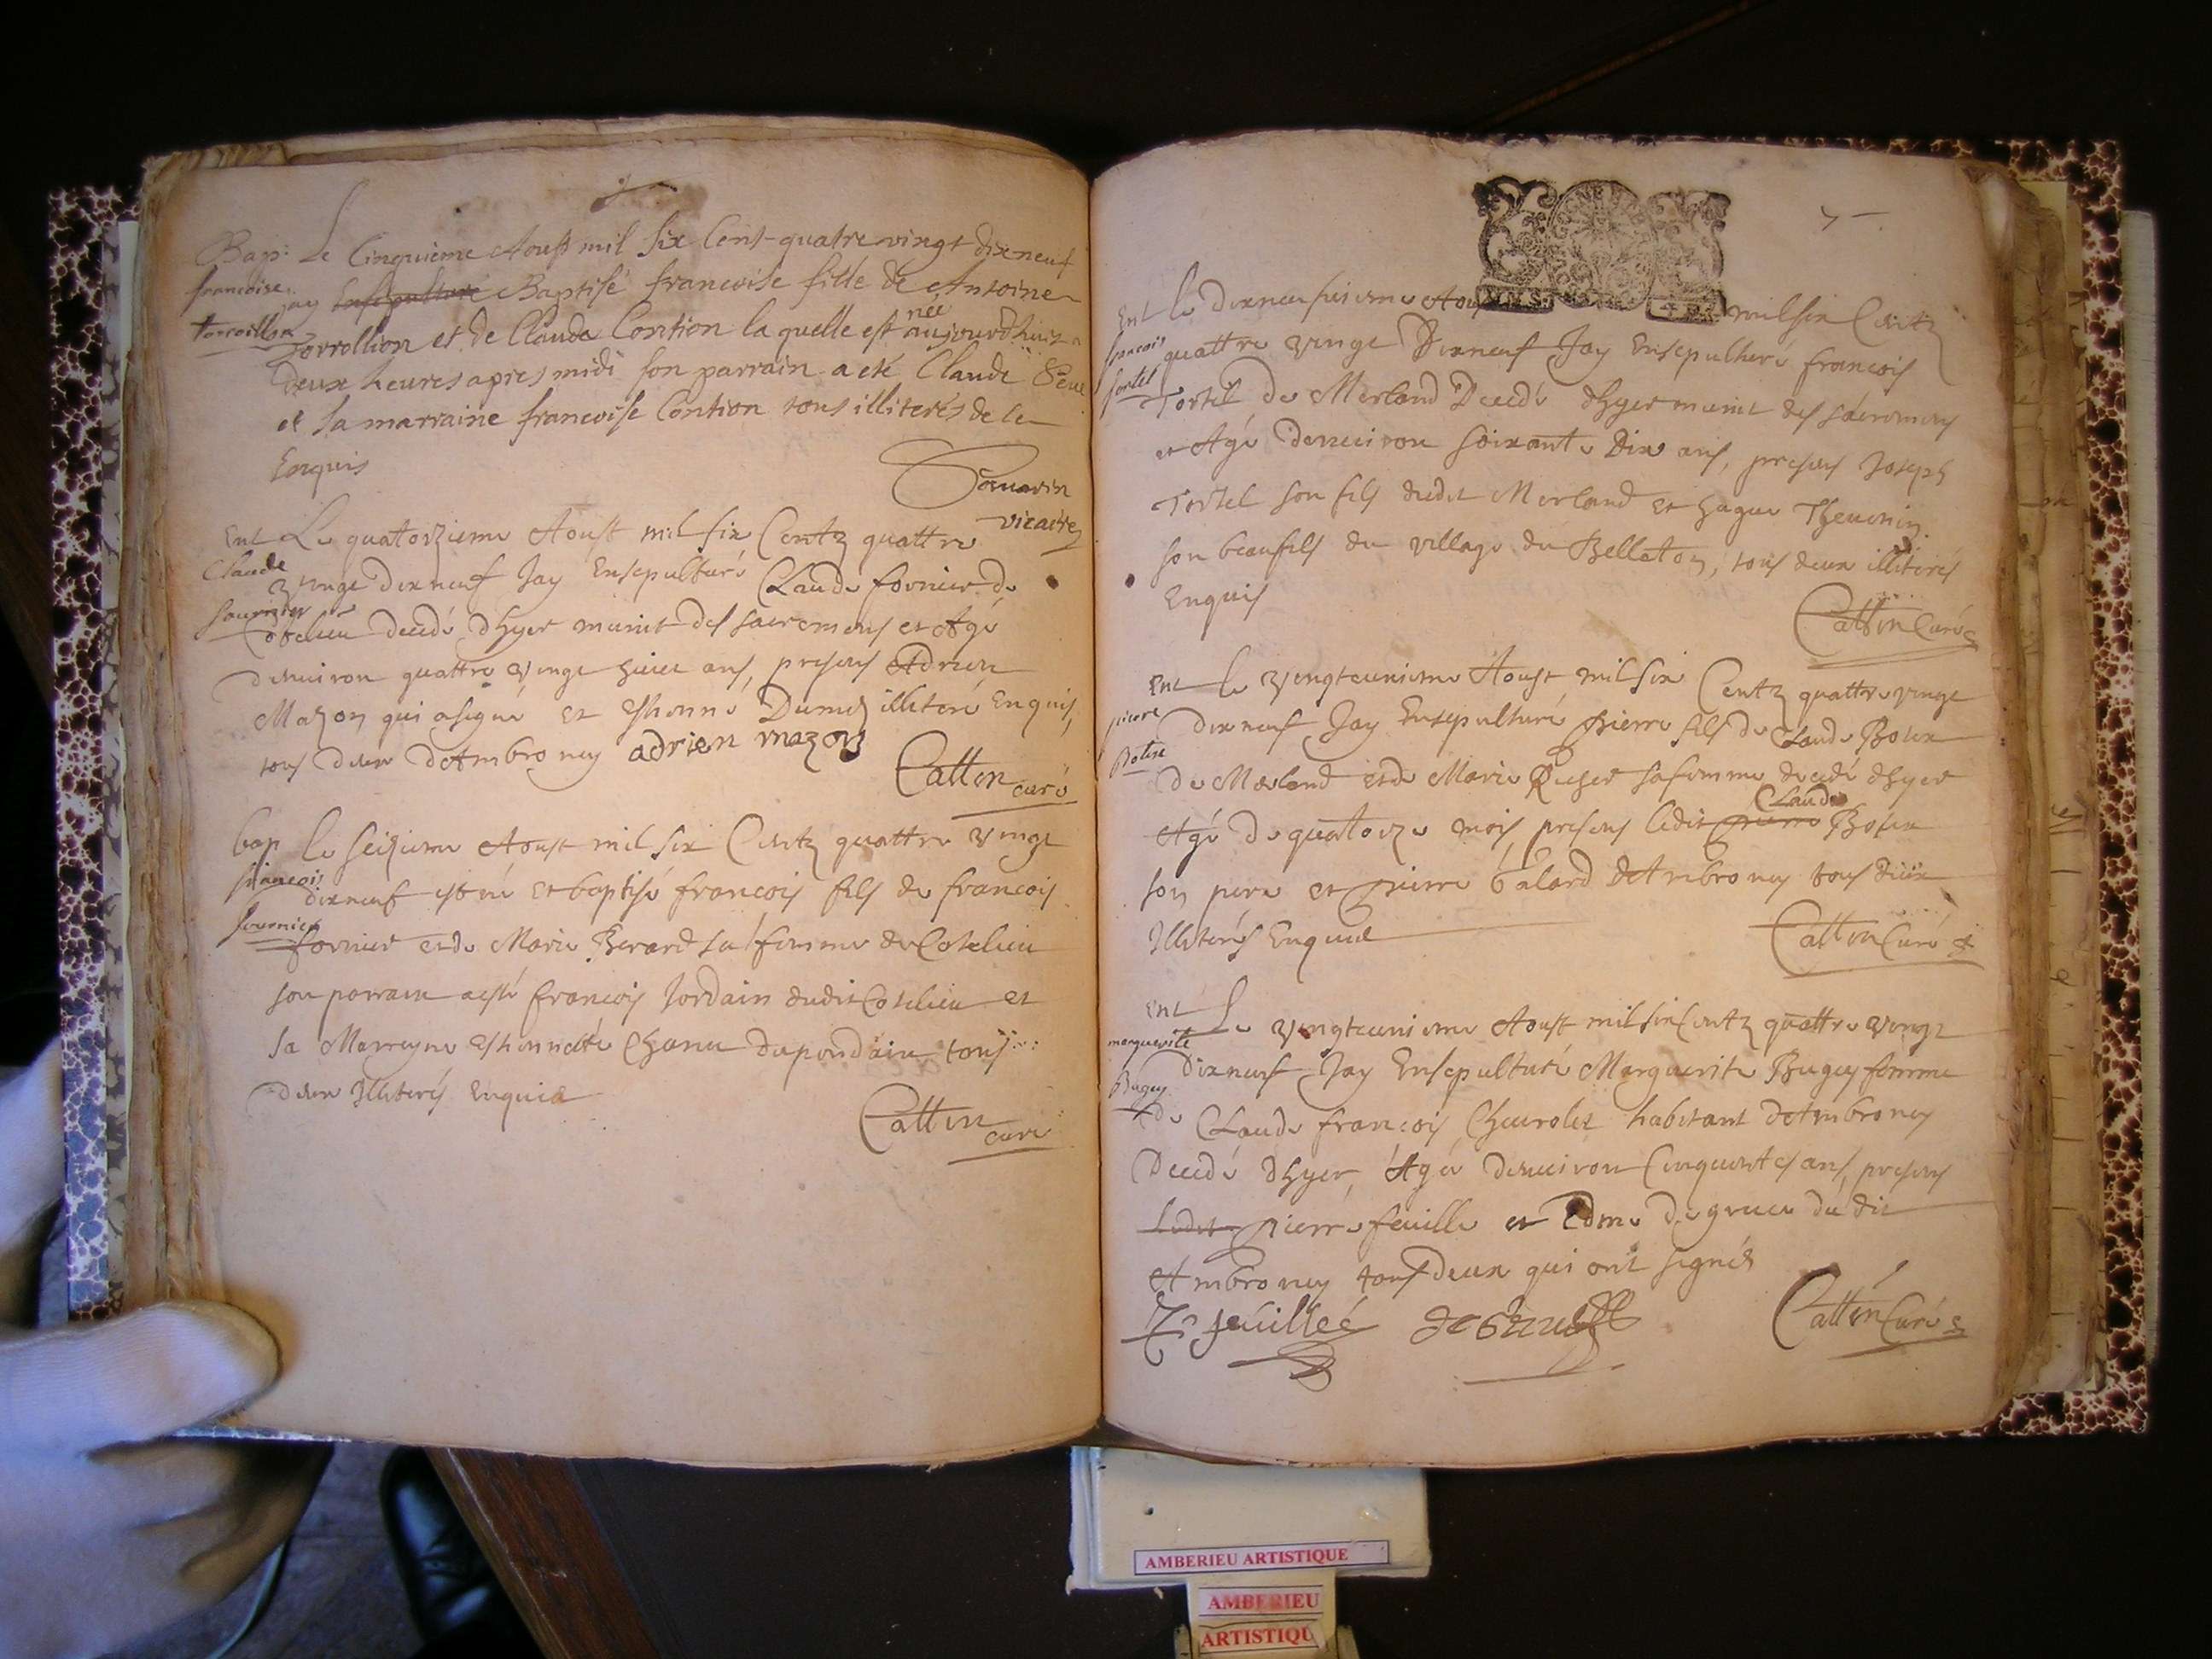 Bap: Le Cinquieme Aoust mil six Cent quatre vingt dixneuf
francoise jay Ensepulturé Baptisé francoise fille de Antoine
torrollion Torrollion et de Claudа Contion la quelle est née aujourdhuis a
deux heures apres midi son parrain a eté Claude
et sa marraine francoise Contion tous illiterés de ce
Enquis
vicaire
Ent Le quatorzieme Aoust mil six Centz quattre
Claude vingt dixneuf Jay Ensepulturé Claude fornier de
fournier Cotelieu decedé dhyer munit des sacremens et Agé
denviron quattre vingt huict ans, presens Adrien
Mazon qui a signé et Ethienne Dumas illiteré Enquis,
tous deux dAmbronay adrien mazon
Cattin curé
bap Le seizieme Aoust mil six Centz quattre vingt
francois dixneuf est né et baptisé francois fils de francois
fournier fornier et de Marie Berard sa femme de Cotelieu
son parrain a esté francois Jordain dudit Cotelieu et
sa Marreyne Ethiennette Chanu du tous
deux Illiterés Enquis
Cattin curé
7
Ent Le dixneufvieme Aoust mil six Centz
francois quattre vingt Dixneuf Jay Ensepulturé francois
tortel Tortel de Merland Decedé dhyer munit des sacremens
et Agé denviron soixante Dix ans, presens Joseph
Tortel son fils dudit Merland et hugue Thevenin
son beaufils du village du Bellaton, tous deux illiterés
Enquis
Cattin Curé
Ent Le vingteunieme Aoust mil six Centz quattre vingt
pierre dixneuf Jay Ensepulturé Pierre fils de Claude Botex
Botex de Merland et de Marie sa femme decedé dhyer
Agé de quatorze mois, presens ledit pierre Claude Botex
son pere et pierre balard dAmbronay tous deux
Illiterés Enquis
Cattin Curé
Ent Le vingteunieme Aoust mil six Centz quattre vingt
marguerite dixneuf Jay Ensepulturé Marguerite Bugey femme
Bugey de Claude francois Chevrolet habitant dAmbronay
Decedé dhyer, Agée denviron Cinquantes ans, presens
ledit pierre feuille et Edme degruel du dit
Ambronay tous deux qui ont signés
P feuilleé degruel Cattin Curé
AMBERIEU ARTISTIQUE
AMBERIEU
ARTISTIQU